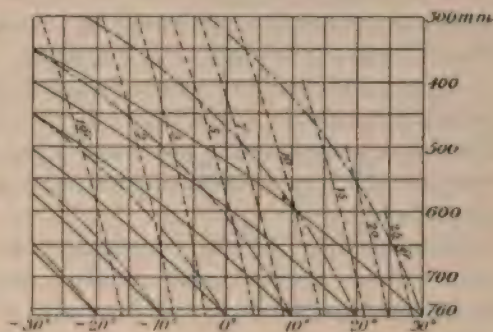 300 mm
400
500
600
700
760
-30° -20° -10° 0° 10° 20° 30°
10 15 20